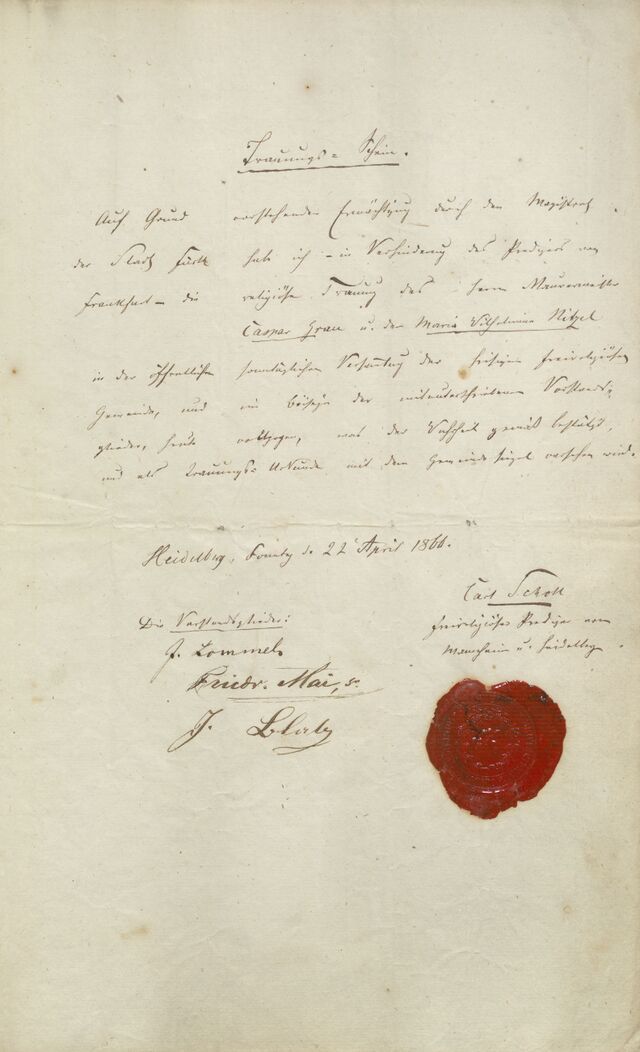 Trauungs = Schein.
Auf Grund vorstehender Ermächtigung durch den Magistrat
der Stadt Fürth habe ich – in Verhinderung des Predigers von
Frankfurt – die religiöse Trauung des Herrn Maurermeister
Caspar Grau u. der Maria Wilhelmine Nitzel
in der öffentlichen sonntäglichen Versammlung der hiesigen freireligiösen
Gemeinde, und im Beisein der mitunterschriebenen Vorstands-
glieder, heute vollzogen, was der Wahrheit gemäß bestätigt,
und als Trauungs-Urkunde mit dem Gemeindesiegel versehen wird.
Heidelberg, Sonntag d. 22 April 1866.
Carl Scholl
freireligiöser Prediger von
Mannheim u. Heidelberg.
Die Vorstandsglieder:
J. Lommel
Friedr. Mai, sr.
J.